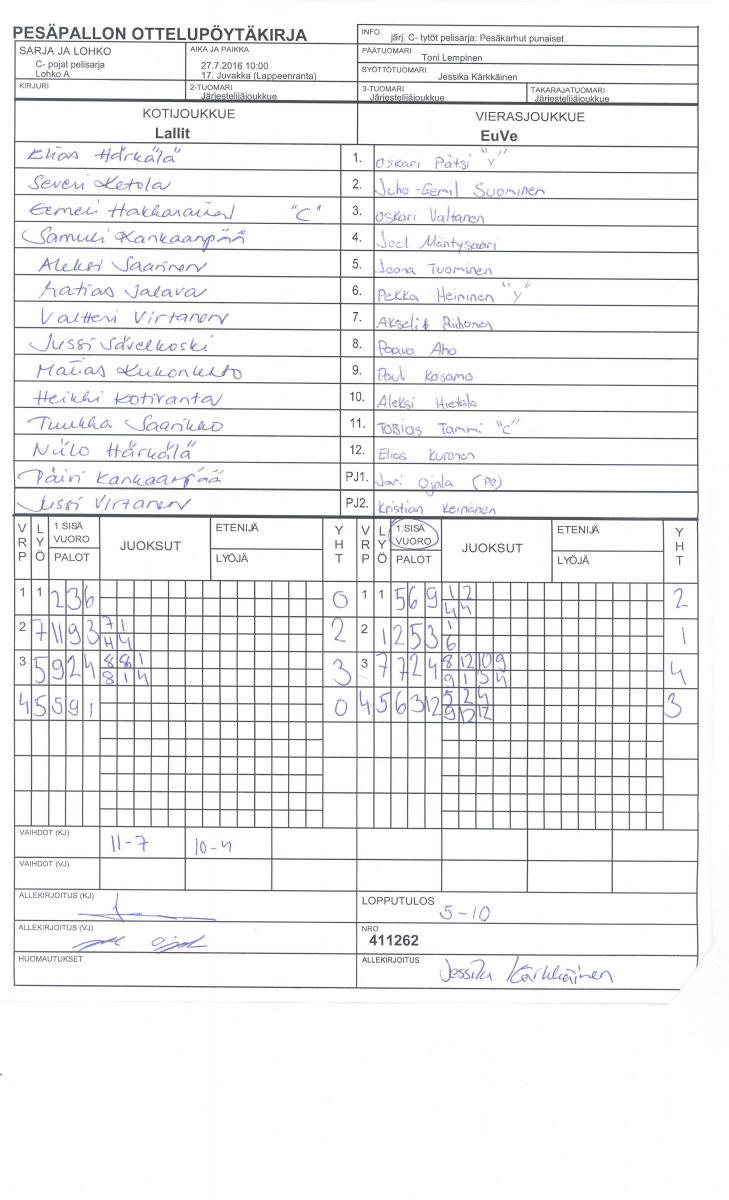 PESÄPALLON OTTELUPÖYTÄKIRJA
INFO järj. C- tytöt pelisarja: Pesäkarhut punaiset
SARJA JA LOHKO
C- pojat pelisarja
Lohko A
AIKA JA PAIKKA
27.7.2016 10:00
17. Juvakka (Lappeenranta)
PÄÄTUOMARI
Toni Lempinen
SYÖTTÖTUOMARI
Jessika Kärkkäinen
KIRJURI
2-TUOMARI
Järjestelijäjoukkue
3-TUOMARI
Järjestelijäjoukkue
TAKARAJATUOMARI
Järjestelijäjoukkue
KOTIJOUKKUE
Lallit
VIERASJOUKKUE
EuVe
Elias Härkälä 1. Oskari Pätsi "V"
Severi Ketola 2. Juho-Eemil Suominen
Eemeli Hakkarainen "C" 3. Oskari Valtanen
Samuli Kankaanpää 4. Joel Mäntysaari
Aleksi Saarinen 5. Joona Tuominen
Matias Jalava 6. Pekka Heininen "V"
Valtteri Virtanen 7. Akseli Riihonen
Jussi Sävelkoski 8. Paavo Aho
Matias Kukonlehto 9. Pauli Kosamo
Heikki Kotiranta 10. Aleksi Hietala
Tuukka Saarikko 11. Tobias Tammi "C"
Niilo Härkälä 12. Elias Kuronen
Päivi Kankaanpää PJ1. Jari Ojala (PO)
Jussi Virtanen PJ2. Kristian Keinänen
VRP LYÖ 1.SISÄ VUORO PALOT JUOKSUT ETENIJÄ LYÖJÄ YHT VRP LYÖ 1.SISÄ VUORO PALOT JUOKSUT ETENIJÄ LYÖJÄ YHT
1 1 2 3 6 0 1 1 5 6 9 1 2 2
4 4
2 7 11 9 3 7 1 2 2 1 2 5 3 1 1
4 4 6
3 5 9 2 4 8 8 1 3 3 7 7 2 4 8 12 10 9 4
8 1 4 9 1 5 4
4 5 5 9 1 0 4 5 6 3 12 5 2 4 3
9 12 12
VAIHDOT (KJ) 11-7 10-4
VAIHDOT (VJ)
ALLEKIRJOITUS (KJ)
LOPPUTULOS 5-10
ALLEKIRJOITUS (VJ)
NRO
411262
HUOMAUTUKSET
ALLEKIRJOITUS Jessika Kärkkäinen